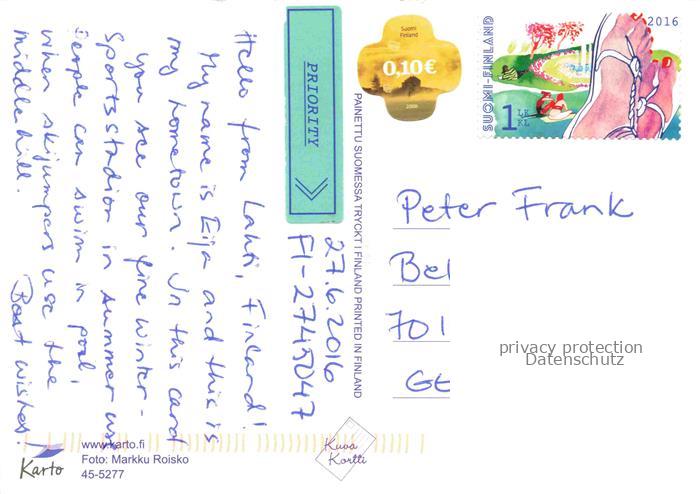 Hello from Lahti, Finland!
My name is Eija and this is
my hometown. In this card
you see our fine winter-
sportsstadion in summer use
People can swim in pool,
when skijumpers use the
middlehill.
Best wishes!
PRIORITY
27.6.2016
FI-2745047
PAINETTU SUOMESSA TRYCKT I FINLAND PRINTED IN FINLAND
Suomi
Finland
0,10€
2008
SUOMI-FINLAND
2016
1 LK
KL
Peter Frank
Bel
701
GE
privacy protection
Datenschutz
Karto
www.karto.fi
Foto: Markku Roisko
45-5277
Kuva
Kortti